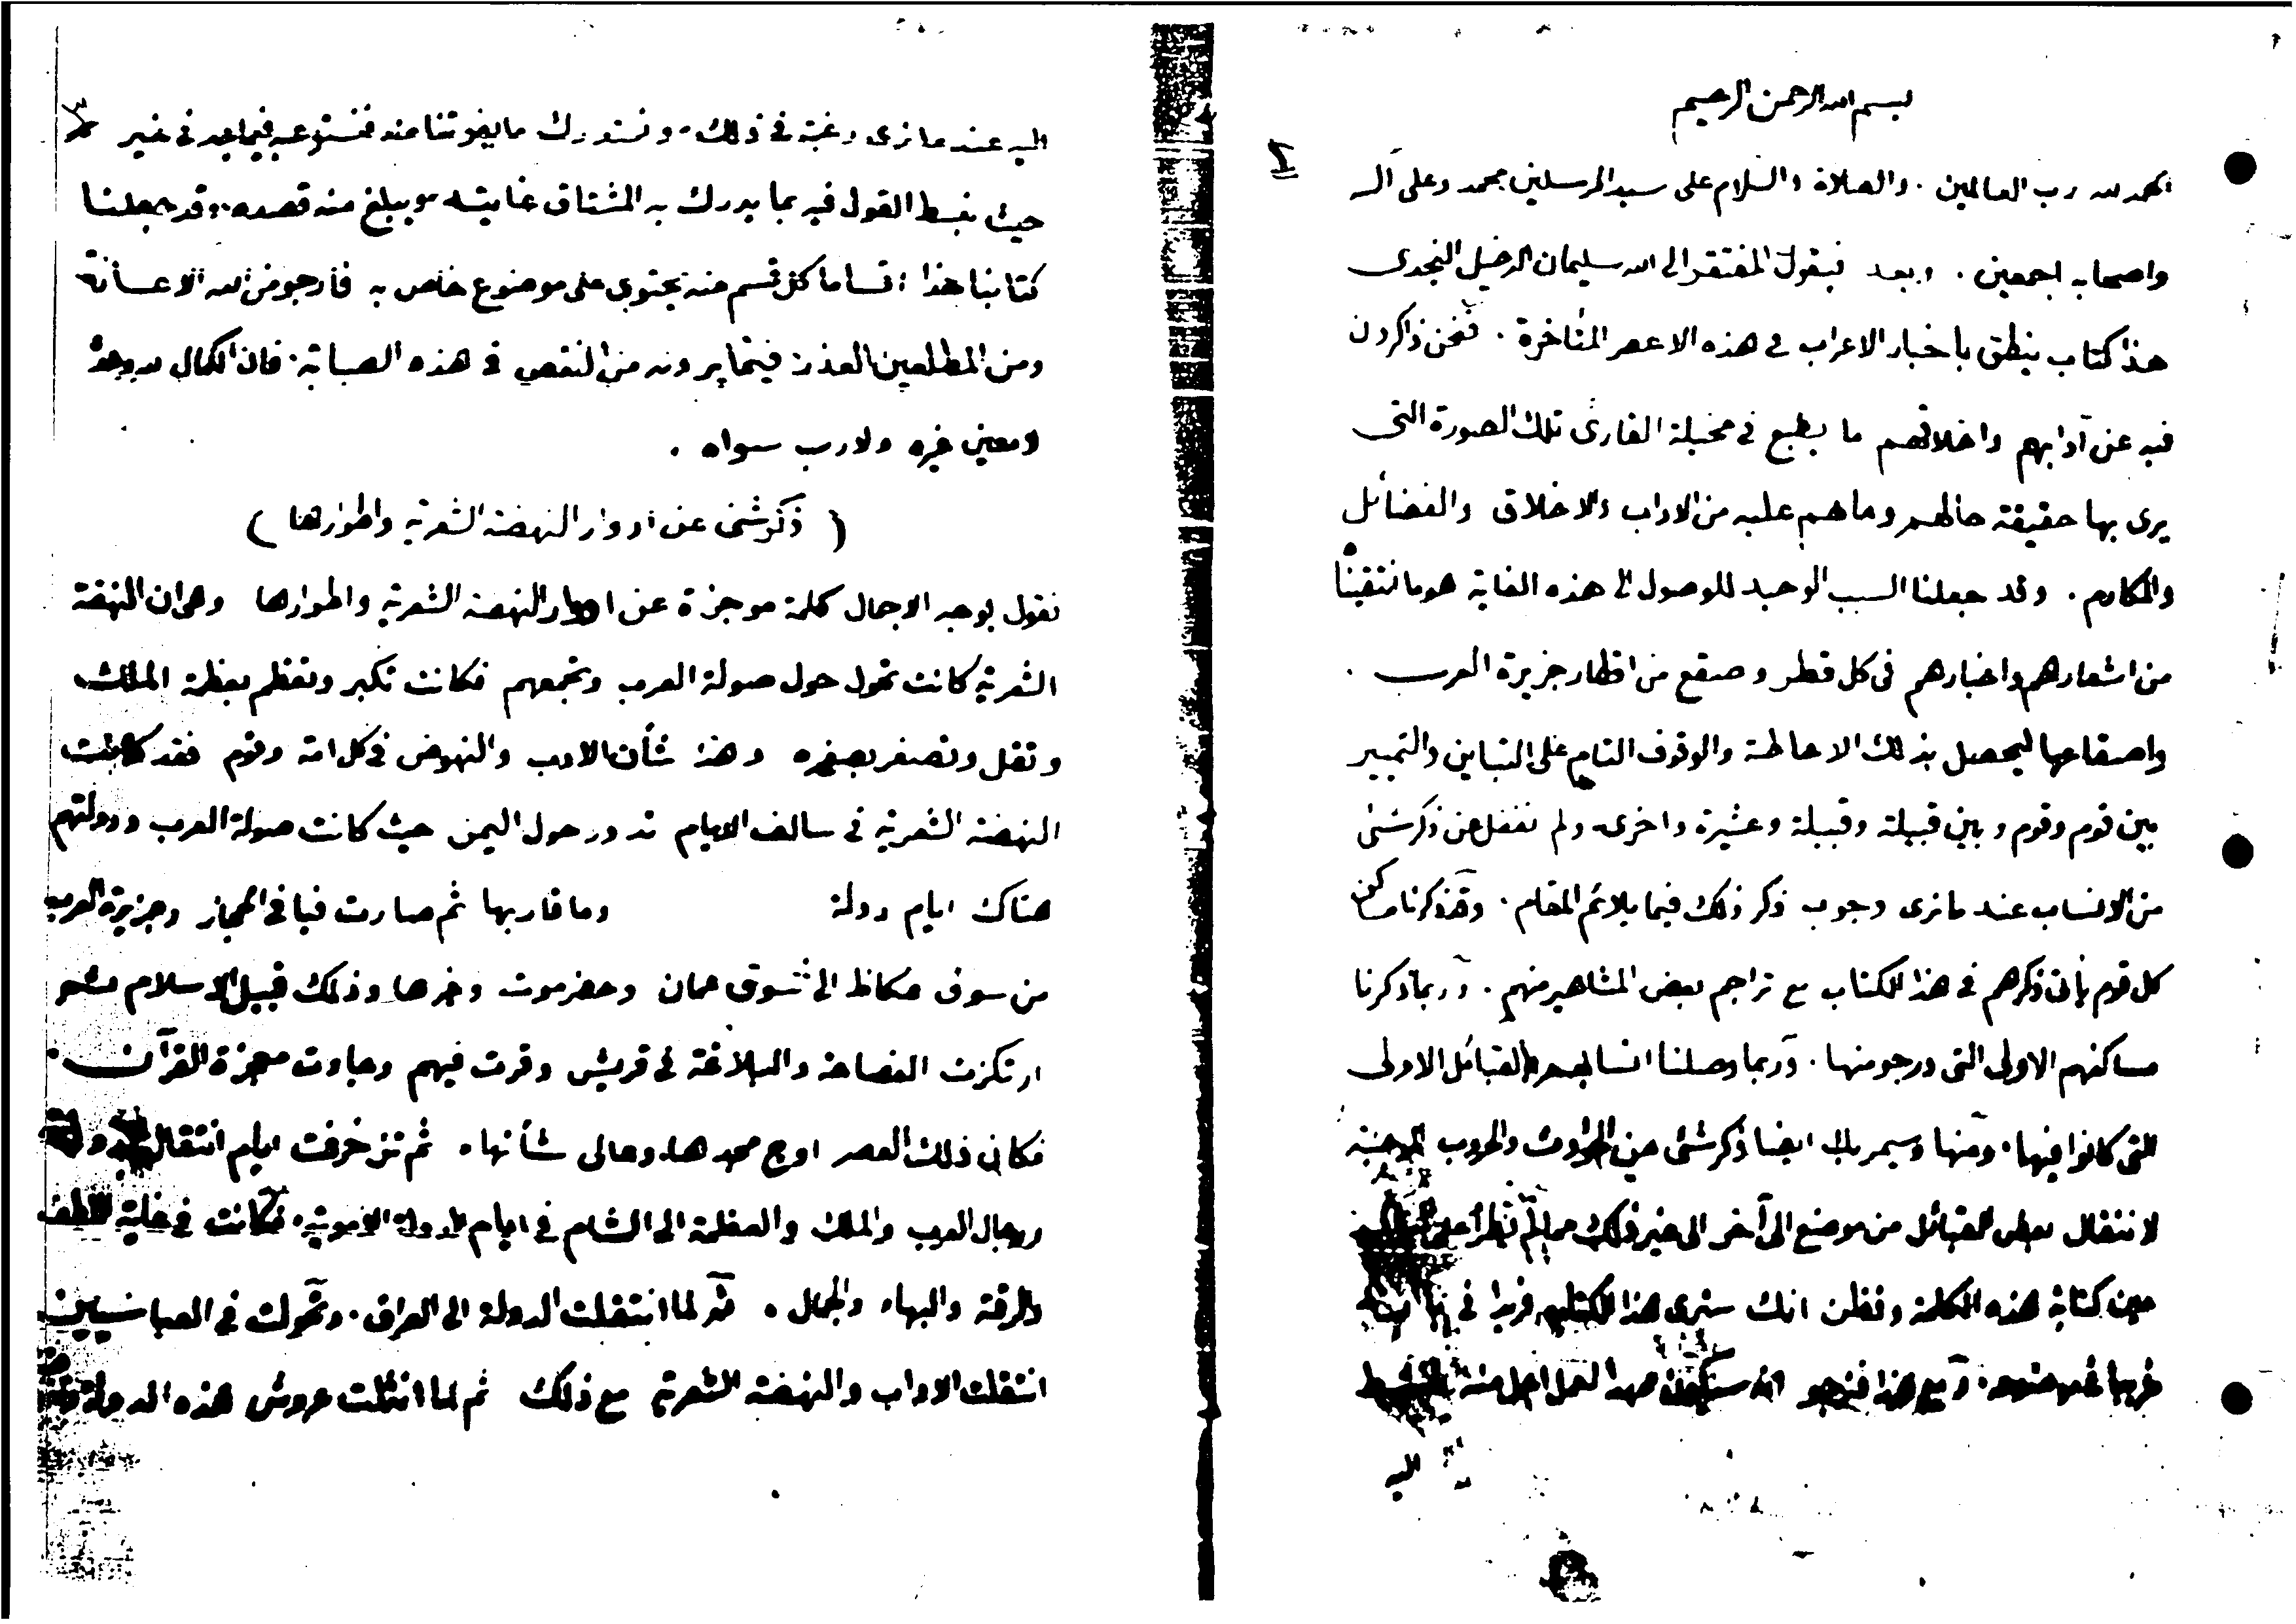 بسم الله الرحمن الرحيم
٢
الحمد لله رب العالمين . والصلاة والسلام على سيد المرسلين محمد وعلى آله
واصحابه اجمعين . وبعد فيقول المفتقر الى الله سليمان الدخيل النجدى
هذا كتاب ينطق باخبار الاعراب فى هذه الاعصر المتأخرة . فنحن ذاكرون
فيه عن آدابهم واخلاقهم ما يطبع فى مخيلة القارئ تلك الصورة التى
يرى بها حقيقة حالهم وما هم عليه من الاداب والاخلاق والفضائل
والمكارم . وقد جعلنا السبب الوحيد للوصول الى هذه الغاية هو ما ننتقيه
من اشعارهم واخبارهم فى كل قطر وصقع من اقطار جزيرة العرب .
واصقاعها ليحصل بذلك الاحاطة والوقوف التام على التباين والتمييز
بين قوم وقوم وبين قبيلة وقبيلة وعشيرة واخرى ولم نغفل عن ذكر شئ
من الانساب عند ما نرى وجوب ذكر ذلك فيما يلائم المقام . وقد ذكرنا مساكن
كل قوم يأتى ذكرهم فى هذا الكتاب مع تراجم بعض المشاهير منهم . وربما ذكرنا
مساكنهم الاولى التى درجو منها . وربما وصلنا انسابهم بالقبائل الاولى
التى كانوا فيها . ومنها وسيمر بك ايضا ذكر شئ من الحوادث والحروب
لانتقال بعض القبائل من موضع الى آخر الى غير ذلك مما لم نطرأ على
حين كتابة هذه الكلمة ونظن انك سترى هذا الكتاب فريدا فى
غريبا فى . ومع هذا فنرجو انه سيكون لهذا العمل اجل منه
اليه
٣
اليه عند ما نرى رغبة فى ذلك . ونستدرك ما يفوتنا منه فنستوعبه فيما بعد فى غير
حيث نبسط القول فيه بما يدرك به المشتاق غايته ويبلغ منه قصده . وقد جعلنا
كتابنا هذا اقساما كل قسم منه يحتوى على موضوع خاص به فأرجو من الله الاعانة
ومن المطلعين العذر فيما يرونه من النقص فى هذه الصبابة . فان الكمال لله وحده
لا معين غيره ولا رب سواه .
( ذكر شئ عن ادوار النهضة الشعرية واطوارها )
نقول بوجه الاجمال كلمة موجزة عن ادوار النهضة الشعرية واطوارها وهى ان النهضة
الشعرية كانت تحول حول صولة العرب وتجمعهم فكانت تكبر وتعظم بعظمة الملك
وتقل وتصغر بصغره وهذا شأن الادب والنهوض فى كل امة وقوم فقد كانت
النهضة الشعرية فى سالف الايام تدور حول اليمن حيث كانت صولة العرب ودولتهم
هناك ايام دولة وما قاربها ثم صارت فيافى الحجاز وجزيرة العرب
من سوق عكاظ الى سوق عمان وحضرموت وغيرها وذلك قبيل الاسلام
ارتكزت الفصاحة والبلاغة فى قريش وقرت فيهم وجاءت معجزة القرآن .
فكان ذلك العصر اوج مجدها وعالى شأنها . ثم تزخرفت ايام انتقال
ورجال العرب والملك والعظمة الى الشام فى ايام الدولة الاموية . فكانت فى غاية اللطف
والرقة والبهاء والجمال . ثم لما انتقلت الدولة الى العراق . وتحولت فى العباسيين
انتقلت الاداب والنهضة الشعرية مع ذلك ثم لما انثلت عروش هذه الدولة